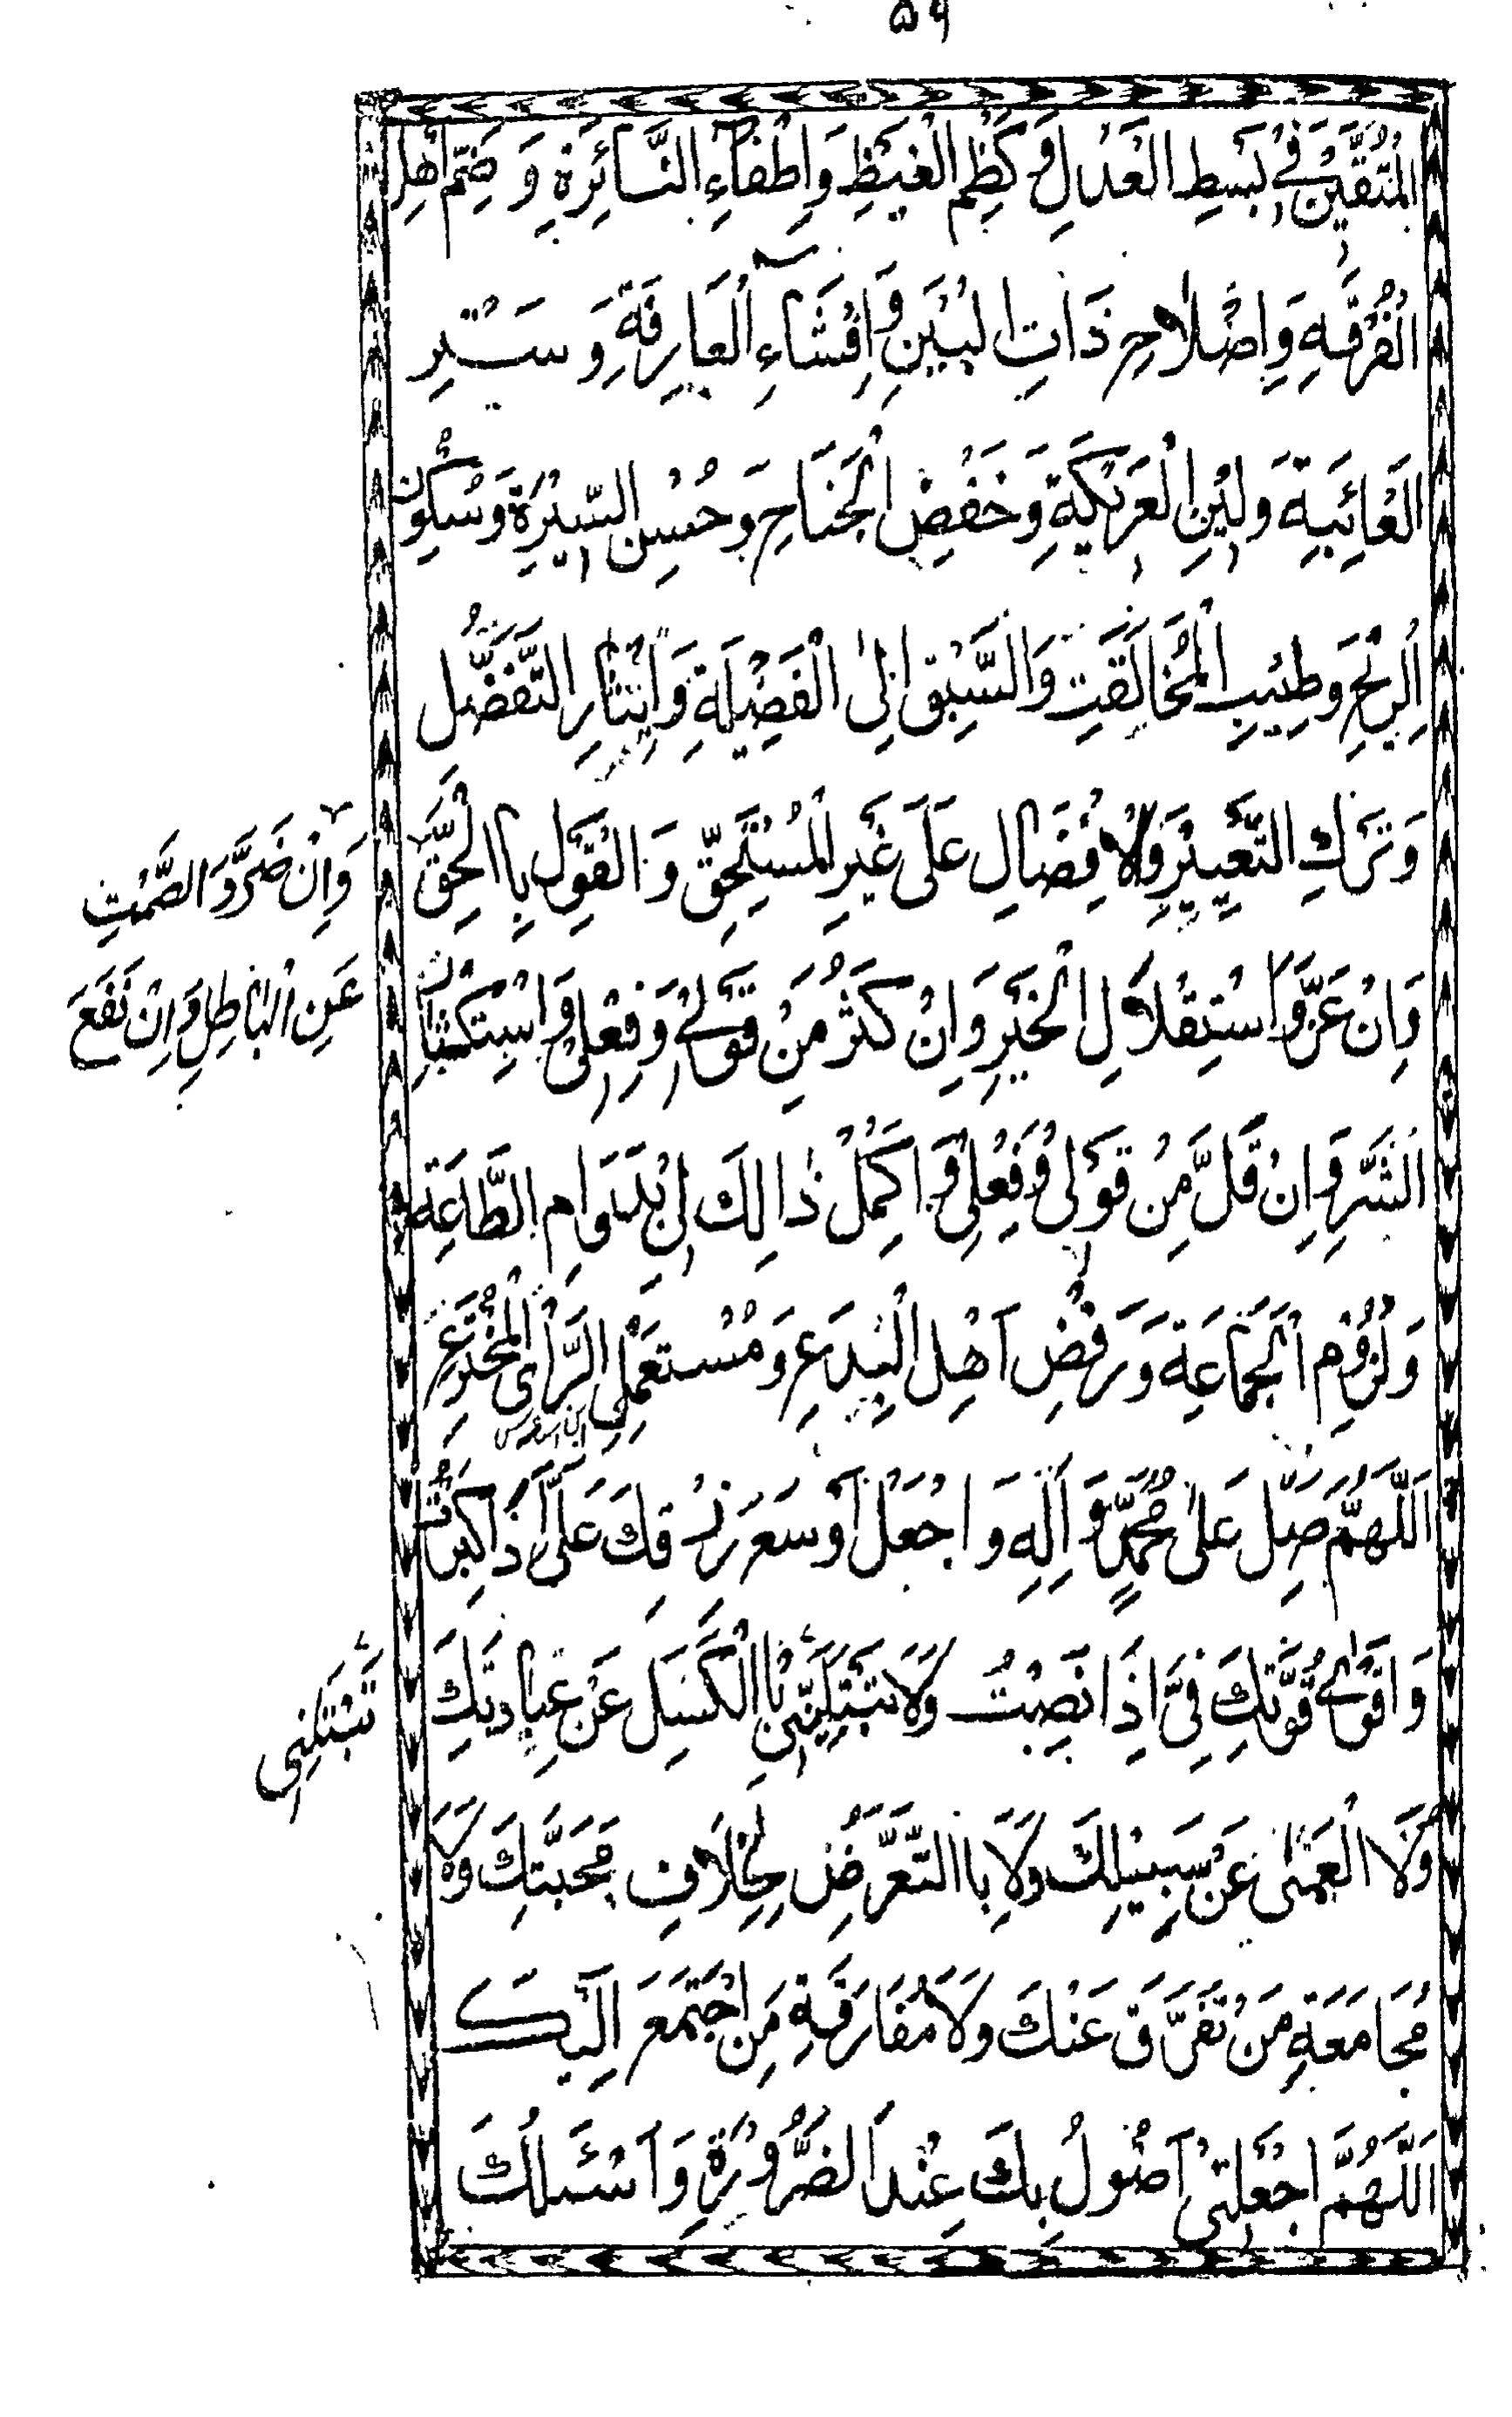 ۵۹
الْمُتَّقِيْنَ فِيْ بَسْطِ الْعَدْلِ وَ كَظْمِ الْغَيْظِ وَاِطْفَآءِ النَّائِرَةِ وَ ضَمِّ اَهْلِ
الْفُرْقَةِ وَاِصْلَاحِ ذَاتِ الْبَيْنِ وَ اِفْشَآءِ الْعَارِفَةِ وَ سَتْرِ
الْعَائِبَةِ وَلِيْنِ الْعَرِيْكَةِ وَخَفْضِ الْجَنَاحِ وَ حُسْنِ السِّيْرَةِ وَسُكُوْنِ
الرِّيْحِ وَطِيْبِ الْمُخَالَقَتِ وَالسَّبْقِ اِلَى الْفَضِيْلَةِ وَاِيْثَارِ التَّفَضُّلِ
وَتَرْكِ التَّعْيِيْرِ وَالْاِفْضَالِ عَلَى غَيْرِ الْمُسْتَحِقِّ وَ الْقَوْلِ بِا الْحَقِّ
وَاِنْ عَزَّ وَ اسْتِقْلَالِ الْخَيْرِ وَاِنْ كَثُرَ مِنْ قَوْلِيْ وَفِعْلِيْ وَاسْتِكْثَارِ
الشَّرِّ وَاِنْ قَلَّ مِنْ قَوْلِيْ وَفِعْلِيْ وَ اَكْمِلْ ذَالِكَ لِيْ بِدَوَامِ الطَّاعَةِ
وَلُزُوْمِ الْجَمَاعَةِ وَرَفْضِ اَهْلِ الْبِدَعِ وَمُسْتَعْمِلِي الرَّاْيِ الْمُخْتَرَعِ
اَللّٰهُمَّ صَلِّ عَلٰى مُحَمَّدٍ وَّ اٰلِهٖ وَ اجْعَلْ اَوْسَعَ رِزْقِكَ عَلَيَّ اِذَا كَبِرْتُ
وَ اَقْوٰى قُوَّتِكَ فِيَّ اِذَا نَصِبْتُ وَلَا تَبْتَلِيَنِّيْ بِا الْكَسَلِ عَنْ عِبَادَتِكَ
وَلَا الْعَمٰى عَنْ سَبِيْلِكَ وَلَا بِا التَّعَرُّضِ لِخِلَافِ مَحَبَّتِكَ وَلَا
مُجَامَعَةِ مَنْ تَفَرَّقَ عَنْكَ وَلَا مُفَارَقَةِ مَنِ اجْتَمَعَ اِلَيْكَ
اَللّٰهُمَّ اجْعَلْنِيْ اَصُوْلُ بِكَ عِنْدَ الضَّرُوْرَةِ وَ اَسْئَلُكَ
وَاِنْ ضَرَّ وَ الصَّمْتِ
عَنِ الْبَاطِلِ وَاِنْ نَفَعَ
تَبْتَلِنِي